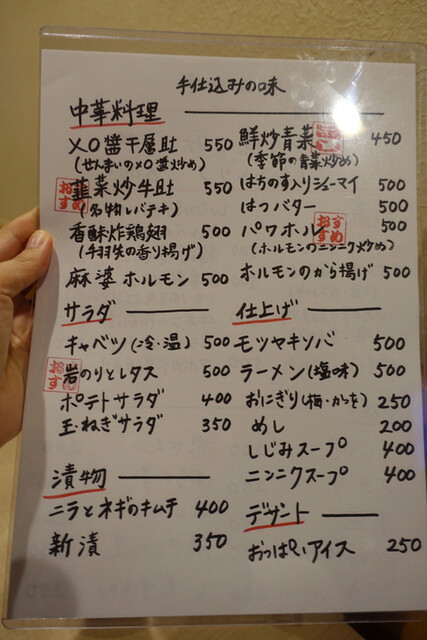 手仕込みの味
中華料理
XO醤干層肚 550
(せんまいのXO醤炒め)
おすすめ
韮菜炒牛肚 550
(名物レバテキ)
香酥炸鶏翅 500
(手羽先の香り揚げ)
麻婆ホルモン 500
サラダ
キャベツ(冷・温) 500
おすすめ
岩のりとレタス 500
ポテトサラダ 400
玉ねぎサラダ 350
漬物
ニラとネギのキムチ 400
新漬 350
鮮炒青菜 450
(季節の青菜炒め)
はちのす入りシューマイ 500
はつバター 500
パワホル 500
おすすめ
(ホルモンのニンニク炒め)
ホルモンのから揚げ 500
仕上げ
モツヤキソバ 500
ラーメン(塩味) 500
おにぎり(梅・かつを) 250
めし 200
しじみスープ 400
ニンニクスープ 400
デザート
おっぱいアイス 250